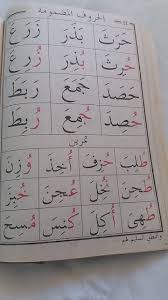 الحروف المضمومة
حَرَثَ بَذَرَ زَرَعَ
حُرِثَ بُذِرَ زُرِعَ
حَصَدَ جَمَعَ رَبَطَ
حُصِدَ جُمِعَ رُبِطَ
تمرين
طُلِبَ أُخِذَ وُزِنَ
طُحِنَ نُخِلَ عُجِنَ خُبِزَ
طُهِيَ أُكِلَ كُنِسَ مُسِحَ